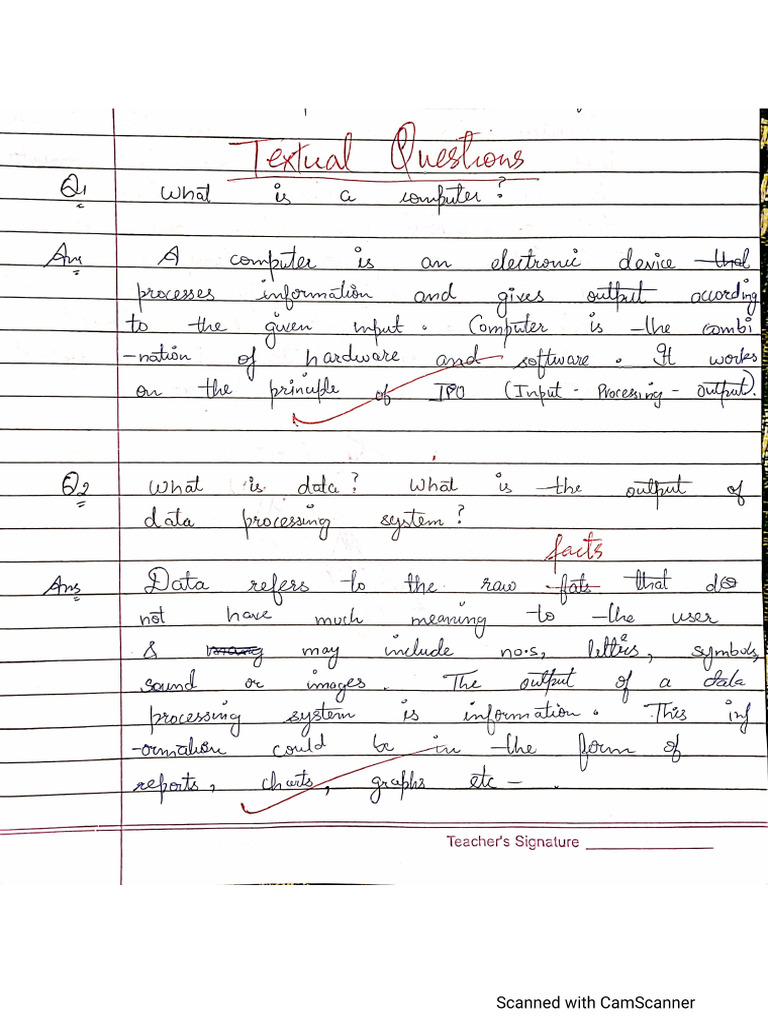 Textual Questions
Q1 What is a computer?
Ans A computer is an electronic device that
processes information and gives output according
to the given input. Computer is the combi
-nation of hardware and software. It works
on the principle of IPO (Input - Processing - Output).
Q2 What is data? What is the output of
data processing system?
facts
Ans Data refers to the raw fats that do
not have much meaning to the user
& may include no.s, letters, symbols,
sound or images. The output of a data
processing system is information. This inf
-ormation could be in the form of
reports, charts, graphs etc - .
Teacher's Signature
Scanned with CamScanner